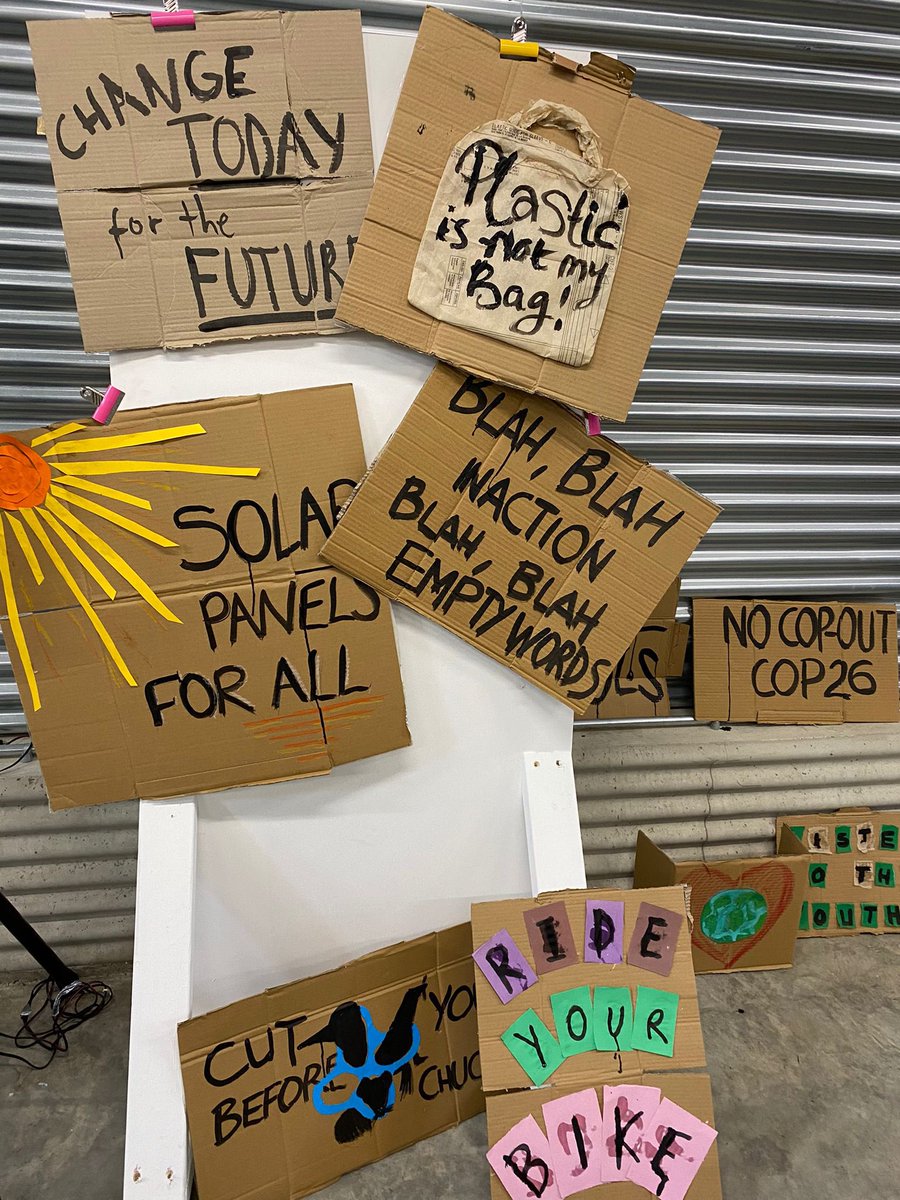 CHANGE
TODAY
for the
FUTURE
Plastic
is not my
Bag!
SOLAR
PANELS
FOR ALL
BLAH, BLAH
INACTION
BLAH, BLAH
EMPTY WORDS
NO COP-OUT
COP26
CUT
BEFORE
RIDE
YOUR
BIKE